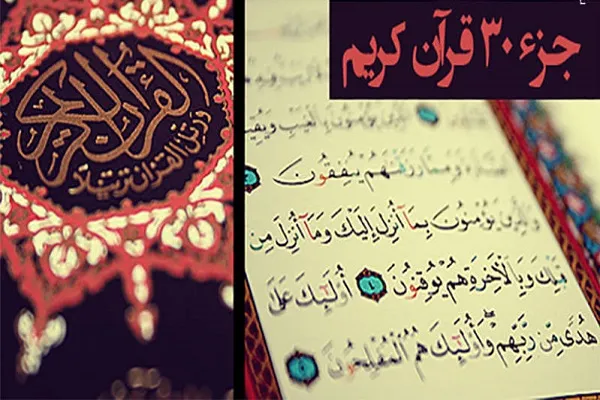 جزء ۳۰ قرآن کریم
القرآن الكريم
ورتل القرآن ترتيلا
يُؤْمِنُونَ بِالْغَيْبِ
وَمِمَّا رَزَقْنَاهُمْ يُنفِقُونَ
وَالَّذِينَ يُؤْمِنُونَ بِمَآ أُنزِلَ إِلَيْكَ وَمَآ أُنزِلَ مِن
قَبْلِكَ وَبِالْأَخِرَةِ هُمْ يُوقِنُونَ ٤ أُولَٰٓئِكَ عَلَىٰ
هُدًى مِّن رَّبِّهِمْ ۖ وَأُولَٰٓئِكَ هُمُ الْمُفْلِحُونَ ٥